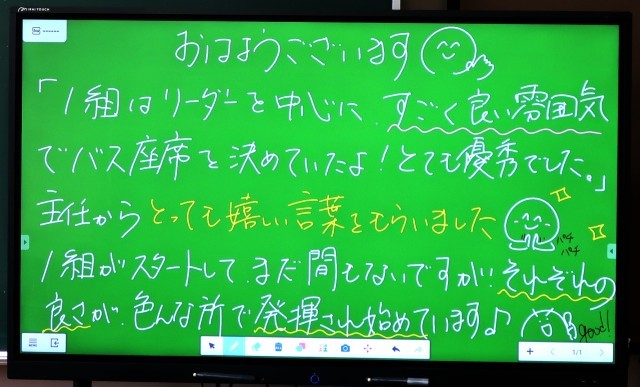 おはようございます
「1組はリーダーを中心に、すごく良い雰囲気
でバス座席を決めていたよ!とても優秀でした。」
主任からとっても嬉しい言葉をもらいました
パチ
パチ
1組がスタートして、まだ間もないですが、それぞれの
良さが、色んな所で発揮され始めています♪
good!
1/1